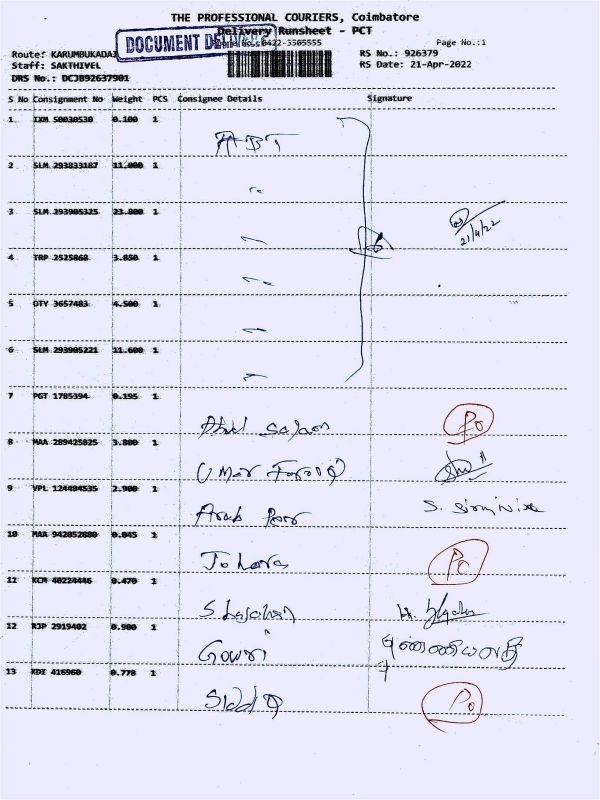 THE PROFESSIONAL COURIERS, Coimbatore
Delivery Runsheet - PCT
DOCUMENT
Phone No.:0422-3505555
Page No.:1
Route: KARUMBUKADAI
RS No.: 926379
Staff: SAKTHIVEL
RS Date: 21-Apr-2022
DRS No.: DCJB92637901
S No Consignment No Weight PCS Consignee Details Signature
1 IXM 50030530 0.100 1 ABT
2 SLM 293833187 11.000 1
3 SLM 293905325 23.800 1
21/4/22
4 TRP 2525868 3.850 1
5 OTY 3657483 4.500 1
6 SLM 293905221 11.600 1
7 PGT 1785394 0.195 1
Abdul Salam Po
8 MAA 289425825 3.800 1
Umar Farooq
9 VPL 124494535 2.900 1
Arab S.
10 MAA 942052880 0.045 1
Johara Po
11 KCM 40224446 0.470 1
Shajahan H.
12 RJP 2919402 0.900 1
Gowri
13 KDI 416960 0.770 1
Siddiq Po